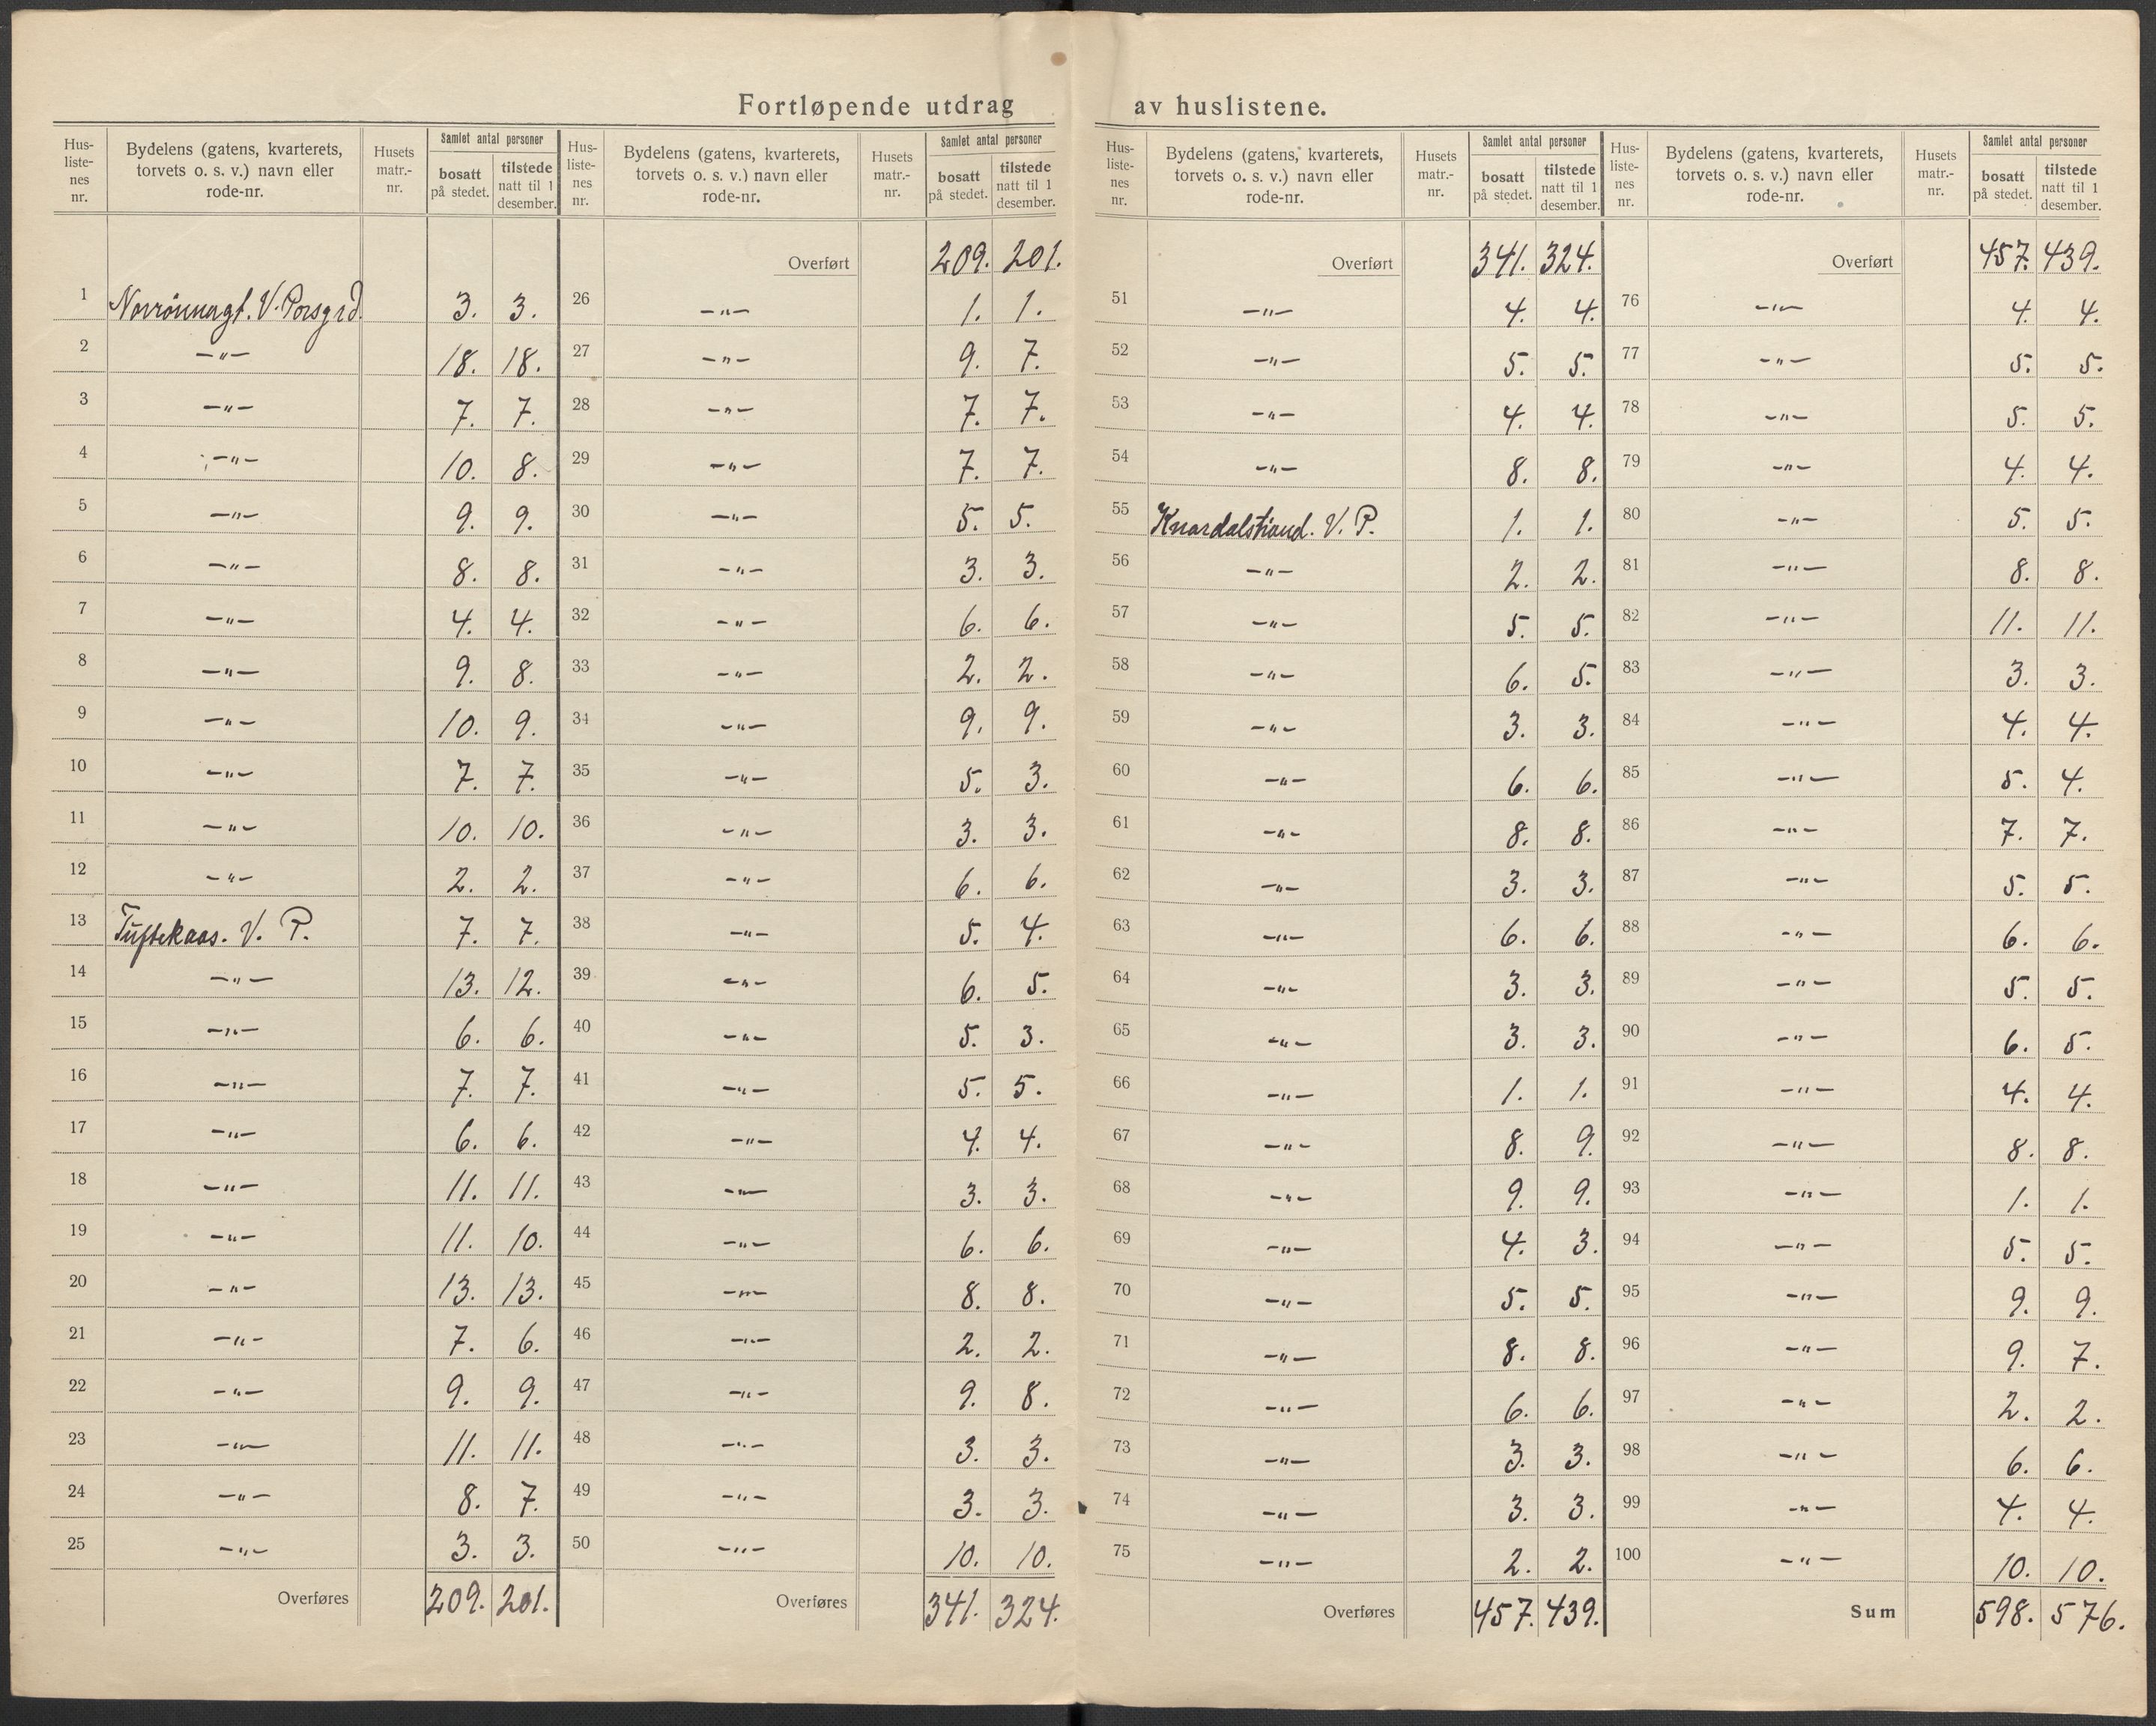 Fortløpende utdrag av huslistene.
Hus-listenes nr. | Bydelens (gatens, kvarterets, torvets o. s. v.) navn eller rode-nr. | Husets matr.-nr. | Samlet antal personer bosatt på stedet. | tilstede natt til 1 desember.
1 Norrönnagt. V. Porsgrd. 3. 3.
2 —"— 18. 18.
3 —"— 7. 7.
4 —"— 10. 8.
5 —"— 9. 9.
6 —"— 8. 8.
7 —"— 4. 4.
8 —"— 9. 8.
9 —"— 10. 9.
10 —"— 7. 7.
11 —"— 10. 10.
12 —"— 2. 2.
13 Tuftekaas. V. P. 7. 7.
14 —"— 13. 12.
15 —"— 6. 6.
16 —"— 7. 7.
17 —"— 6. 6.
18 —"— 11. 11.
19 —"— 11. 10.
20 —"— 13. 13.
21 —"— 7. 6.
22 —"— 9. 9.
23 —"— 11. 11.
24 —"— 8. 7.
25 —"— 3. 3.
Overføres 209. 201.
Hus-listenes nr. | Bydelens (gatens, kvarterets, torvets o. s. v.) navn eller rode-nr. | Husets matr.-nr. | Samlet antal personer bosatt på stedet. | tilstede natt til 1 desember.
Overført 209. 201.
26 —"— 1. 1.
27 —"— 9. 7.
28 —"— 7. 7.
29 —"— 7. 7.
30 —"— 5. 5.
31 —"— 3. 3.
32 —"— 6. 6.
33 —"— 2. 2.
34 —"— 9. 9.
35 —"— 5. 3.
36 —"— 3. 3.
37 —"— 6. 6.
38 —"— 5. 4.
39 —"— 6. 5.
40 —"— 5. 3.
41 —"— 5. 5.
42 —"— 4. 4.
43 —"— 3. 3.
44 —"— 6. 6.
45 —"— 8. 8.
46 —"— 2. 2.
47 —"— 9. 8.
48 —"— 3. 3.
49 —"— 3. 3.
50 —"— 10. 10.
Overføres 341. 324.
Hus-listenes nr. | Bydelens (gatens, kvarterets, torvets o. s. v.) navn eller rode-nr. | Husets matr.-nr. | Samlet antal personer bosatt på stedet. | tilstede natt til 1 desember.
Overført 341. 324.
51 —"— 4. 4.
52 —"— 5. 5.
53 —"— 4. 4.
54 —"— 8. 8.
55 Knardalstrand. V. P. 1. 1.
56 —"— 2. 2.
57 —"— 5. 5.
58 —"— 6. 5.
59 —"— 3. 3.
60 —"— 6. 6.
61 —"— 8. 8.
62 —"— 3. 3.
63 —"— 6. 6.
64 —"— 3. 3.
65 —"— 3. 3.
66 —"— 1. 1.
67 —"— 8. 9.
68 —"— 9. 9.
69 —"— 4. 3.
70 —"— 5. 5.
71 —"— 8. 8.
72 —"— 6. 6.
73 —"— 3. 3.
74 —"— 3. 3.
75 —"— 2. 2.
Overføres 457. 439.
Hus-listenes nr. | Bydelens (gatens, kvarterets, torvets o. s. v.) navn eller rode-nr. | Husets matr.-nr. | Samlet antal personer bosatt på stedet. | tilstede natt til 1 desember.
Overført 457. 439.
76 —"— 4. 4.
77 —"— 5. 5.
78 —"— 5. 5.
79 —"— 4. 4.
80 —"— 5. 5.
81 —"— 8. 8.
82 —"— 11. 11.
83 —"— 3. 3.
84 —"— 4. 4.
85 —"— 5. 4.
86 —"— 7. 7.
87 —"— 5. 5.
88 —"— 6. 6.
89 —"— 5. 5.
90 —"— 6. 5.
91 —"— 4. 4.
92 —"— 8. 8.
93 —"— 1. 1.
94 —"— 5. 5.
95 —"— 9. 9.
96 —"— 9. 7.
97 —"— 2. 2.
98 —"— 6. 6.
99 —"— 4. 4.
100 —"— 10. 10.
Sum 598. 576.